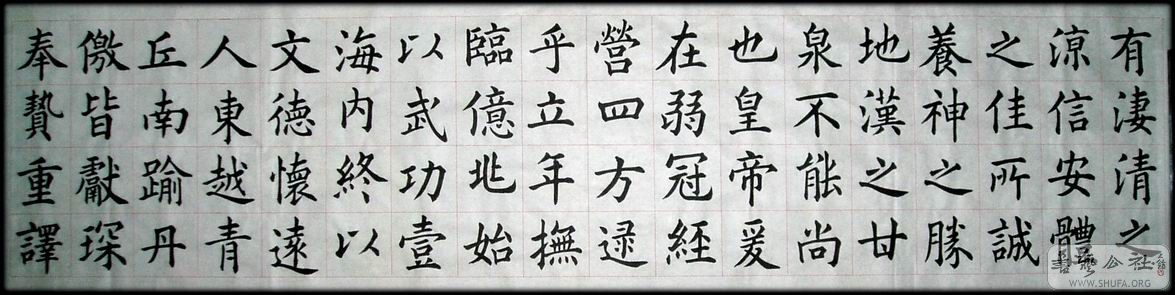 有淒清之
涼信安體
之佳所誠
養神之勝
地漢之甘
泉不能尚
也皇帝爰
在弱冠經
營四方逮
乎立年撫
臨億兆始
以武功壹
海內終以
文德懷遠
人東越青
丘南踰丹
儌皆獻琛
奉贄重譯
公社
WWW.SHUFA.ORG